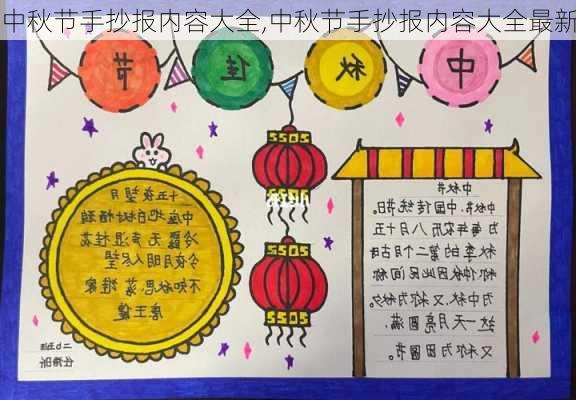 中秋节手抄报内容大全,中秋节手抄报内容大全最新
中秋佳节
十五夜望月
中庭地白树栖鸦
冷露无声湿桂花
今夜月明人尽望
不知秋思落谁家
唐王建
中秋节
中秋节,中国传统节日。
为每年农历八月十五
秋季的第二个月古
称仲秋因此民间称
为中秋又称为秋夕。
这一天月亮圆满,
又称为团圆节。